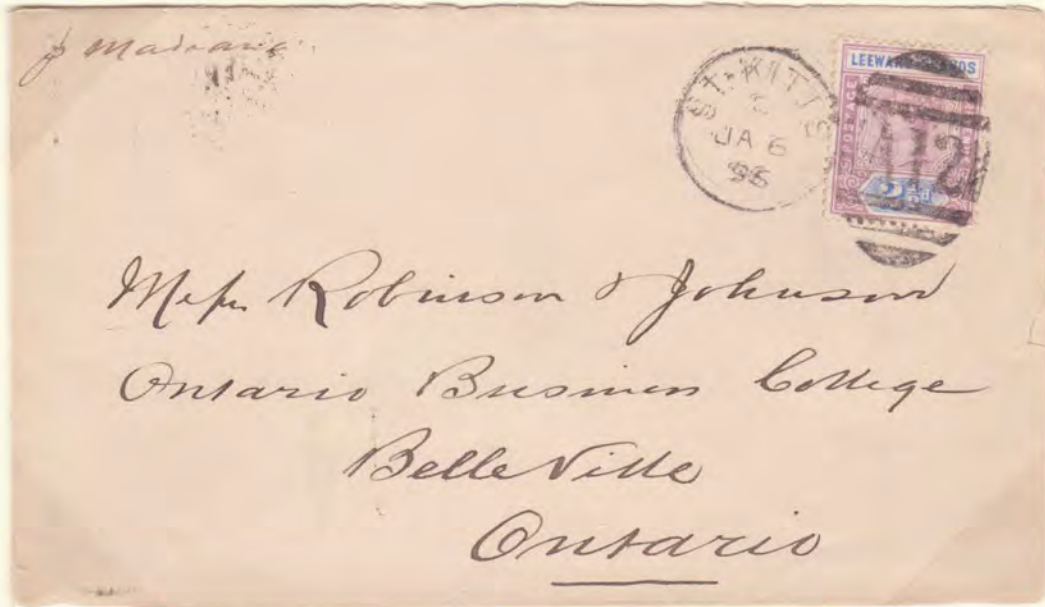 p Madiana
ST. KITTS
JA 6
LEEWARD ISLANDS
POSTAGE
2½d
A12
Mess Robinson & Johnson
Ontario Business College
BelleVille
Ontario